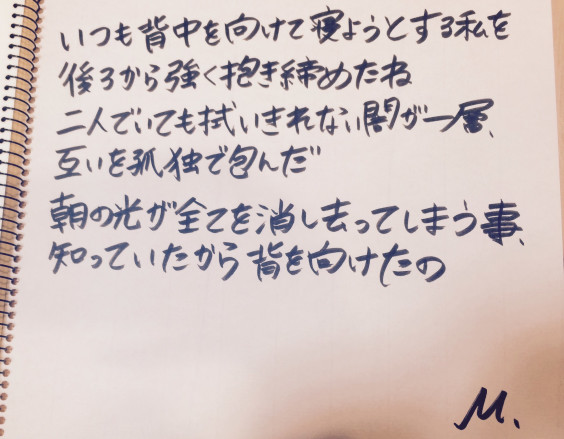 いつも背中を向けて寝ようとする私を
後ろから強く抱き締めたね
二人でいても拭いきれない闇が一層、
互いを孤独で包んだ
朝の光が全てを消し去ってしまう事、
知っていたから背を向けたの
M.